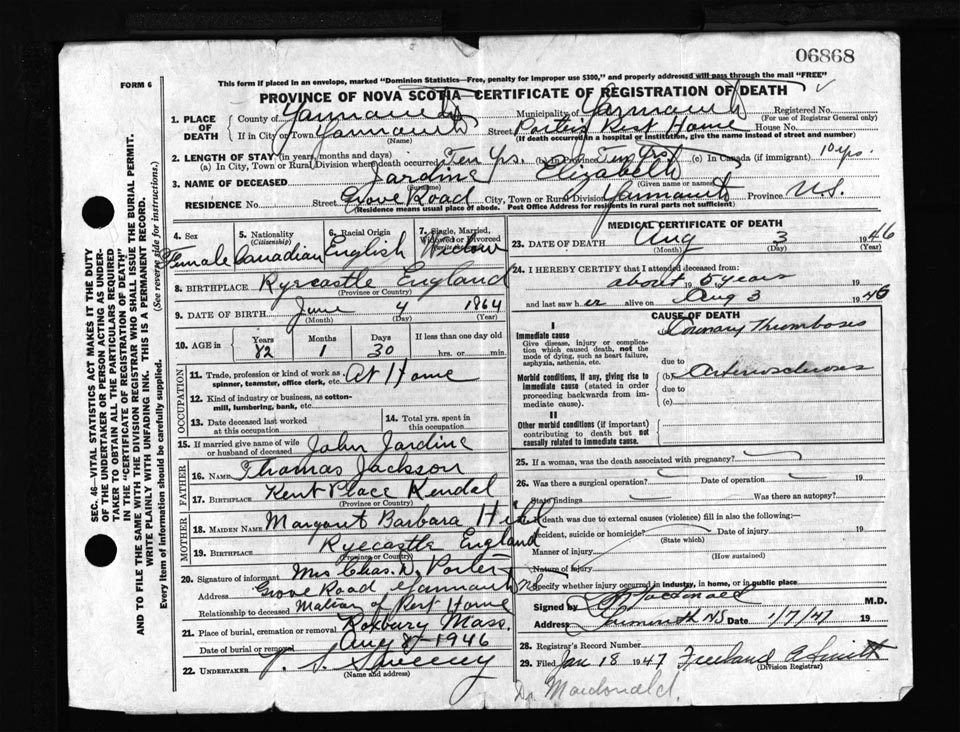 06868
FORM 6
This form if placed in an envelope, marked "Dominion Statistics—Free, penalty for improper use $300," and properly addressed will pass through the mail "FREE"
PROVINCE OF NOVA SCOTIA—CERTIFICATE OF REGISTRATION OF DEATH
1. PLACE OF DEATH County of Yarmouth Municipality of Yarmouth Registered No.
(For use of Registrar General only)
If in City or Town Yarmouth Street Porter's Rest Home House No.
(Name) (If death occurred in hospital or institution, give the name instead of street and number)
2. LENGTH OF STAY (in years, months and days)
(a) In City, Town or Rural Division where death occurred Ten Yrs. (b) In Province Ten Yrs. (c) In Canada (if immigrant) 10 yrs.
3. NAME OF DECEASED Jardine Elizabeth
(Surname) (Given name or names)
RESIDENCE No. Street Grove Road City, Town or Rural Division Yarmouth Province N.S.
(Residence means usual place of abode. Post Office Address for residents in rural parts not sufficient)
4. Sex Female
5. Nationality (Citizenship) Canadian
6. Racial Origin English
7. Single, Married, Widowed or Divorced Widow
8. BIRTHPLACE Ryecastle England
(Province or Country)
9. DATE OF BIRTH June 4 1864
(Month) (Day) (Year)
10. AGE in Years 82 Months 1 Days 30 If less than one day old hrs. or min.
OCCUPATION
11. Trade, profession or kind of work as spinner, teamster, office clerk, etc. At Home
12. Kind of industry or business, as cotton-mill, lumbering, bank, etc.
13. Date deceased last worked at this occupation
14. Total yrs. spent in this occupation
15. If married give name of wife or husband of deceased John Jardine
FATHER
16. NAME Thomas Jackson
17. BIRTHPLACE Kent Place Kendal
(Province or Country)
MOTHER
18. MAIDEN NAME Margaret Barbara
19. BIRTHPLACE Ryecastle England
(Province or Country)
20. Signature of informant Mrs Chas. D. Porter
Address Grove Road Yarmouth N.S.
Relationship to deceased Matron of Rest Home
21. Place of burial, cremation or removal Roxbury Mass.
Date of burial or removal Aug 8 - 1946
22. UNDERTAKER V. S. Sweeney
(Name and address)
MEDICAL CERTIFICATE OF DEATH
23. DATE OF DEATH Aug 3 1946
(Month) (Day) (Year)
24. I HEREBY CERTIFY that I attended deceased from:
about 5 years 19
and last saw her alive on Aug 3 1946
CAUSE OF DEATH
I
Immediate cause
Give disease, injury or complication which caused death, not the mode of dying, such as heart failure, asphyxia, asthenia, etc.
Coronary Thrombosis
due to
Morbid conditions, if any, giving rise to immediate cause (stated in order proceeding backwards from immediate cause).
(b) Arteriosclerosis
due to
(c)
II
Other morbid conditions (if important) contributing to death but not causally related to immediate cause.
25. If a woman, was the death associated with pregnancy?
26. Was there a surgical operation? Date of operation 19
State findings Was there an autopsy?
If death was due to external causes (violence) fill in also the following:—
Accident, suicide or homicide? Date of injury 19
(State which)
Manner of injury
(How sustained)
Nature of injury
Specify whether injury occurred in industry, in home, or in public place
Signed by Macdonald M.D.
Address Yarmouth NS Date 1/7/47 19
28. Registrar's Record Number
29. Filed Jan 18 1947 Freeland A Smith
(Division Registrar)
Dr Macdonald.
SEC. 46—VITAL STATISTICS ACT MAKES IT THE DUTY
OF THE UNDERTAKER OR PERSON ACTING AS UNDER-
TAKER TO OBTAIN ALL THE PARTICULARS REQUIRED
IN THE "CERTIFICATE OF REGISTRATION OF DEATH"
AND TO FILE THE SAME WITH THE DIVISION REGISTRAR WHO SHALL ISSUE THE BURIAL PERMIT.
WRITE PLAINLY WITH UNFADING INK. THIS IS A PERMANENT RECORD.
Every item of information should be carefully supplied. (See reverse side for instructions.)